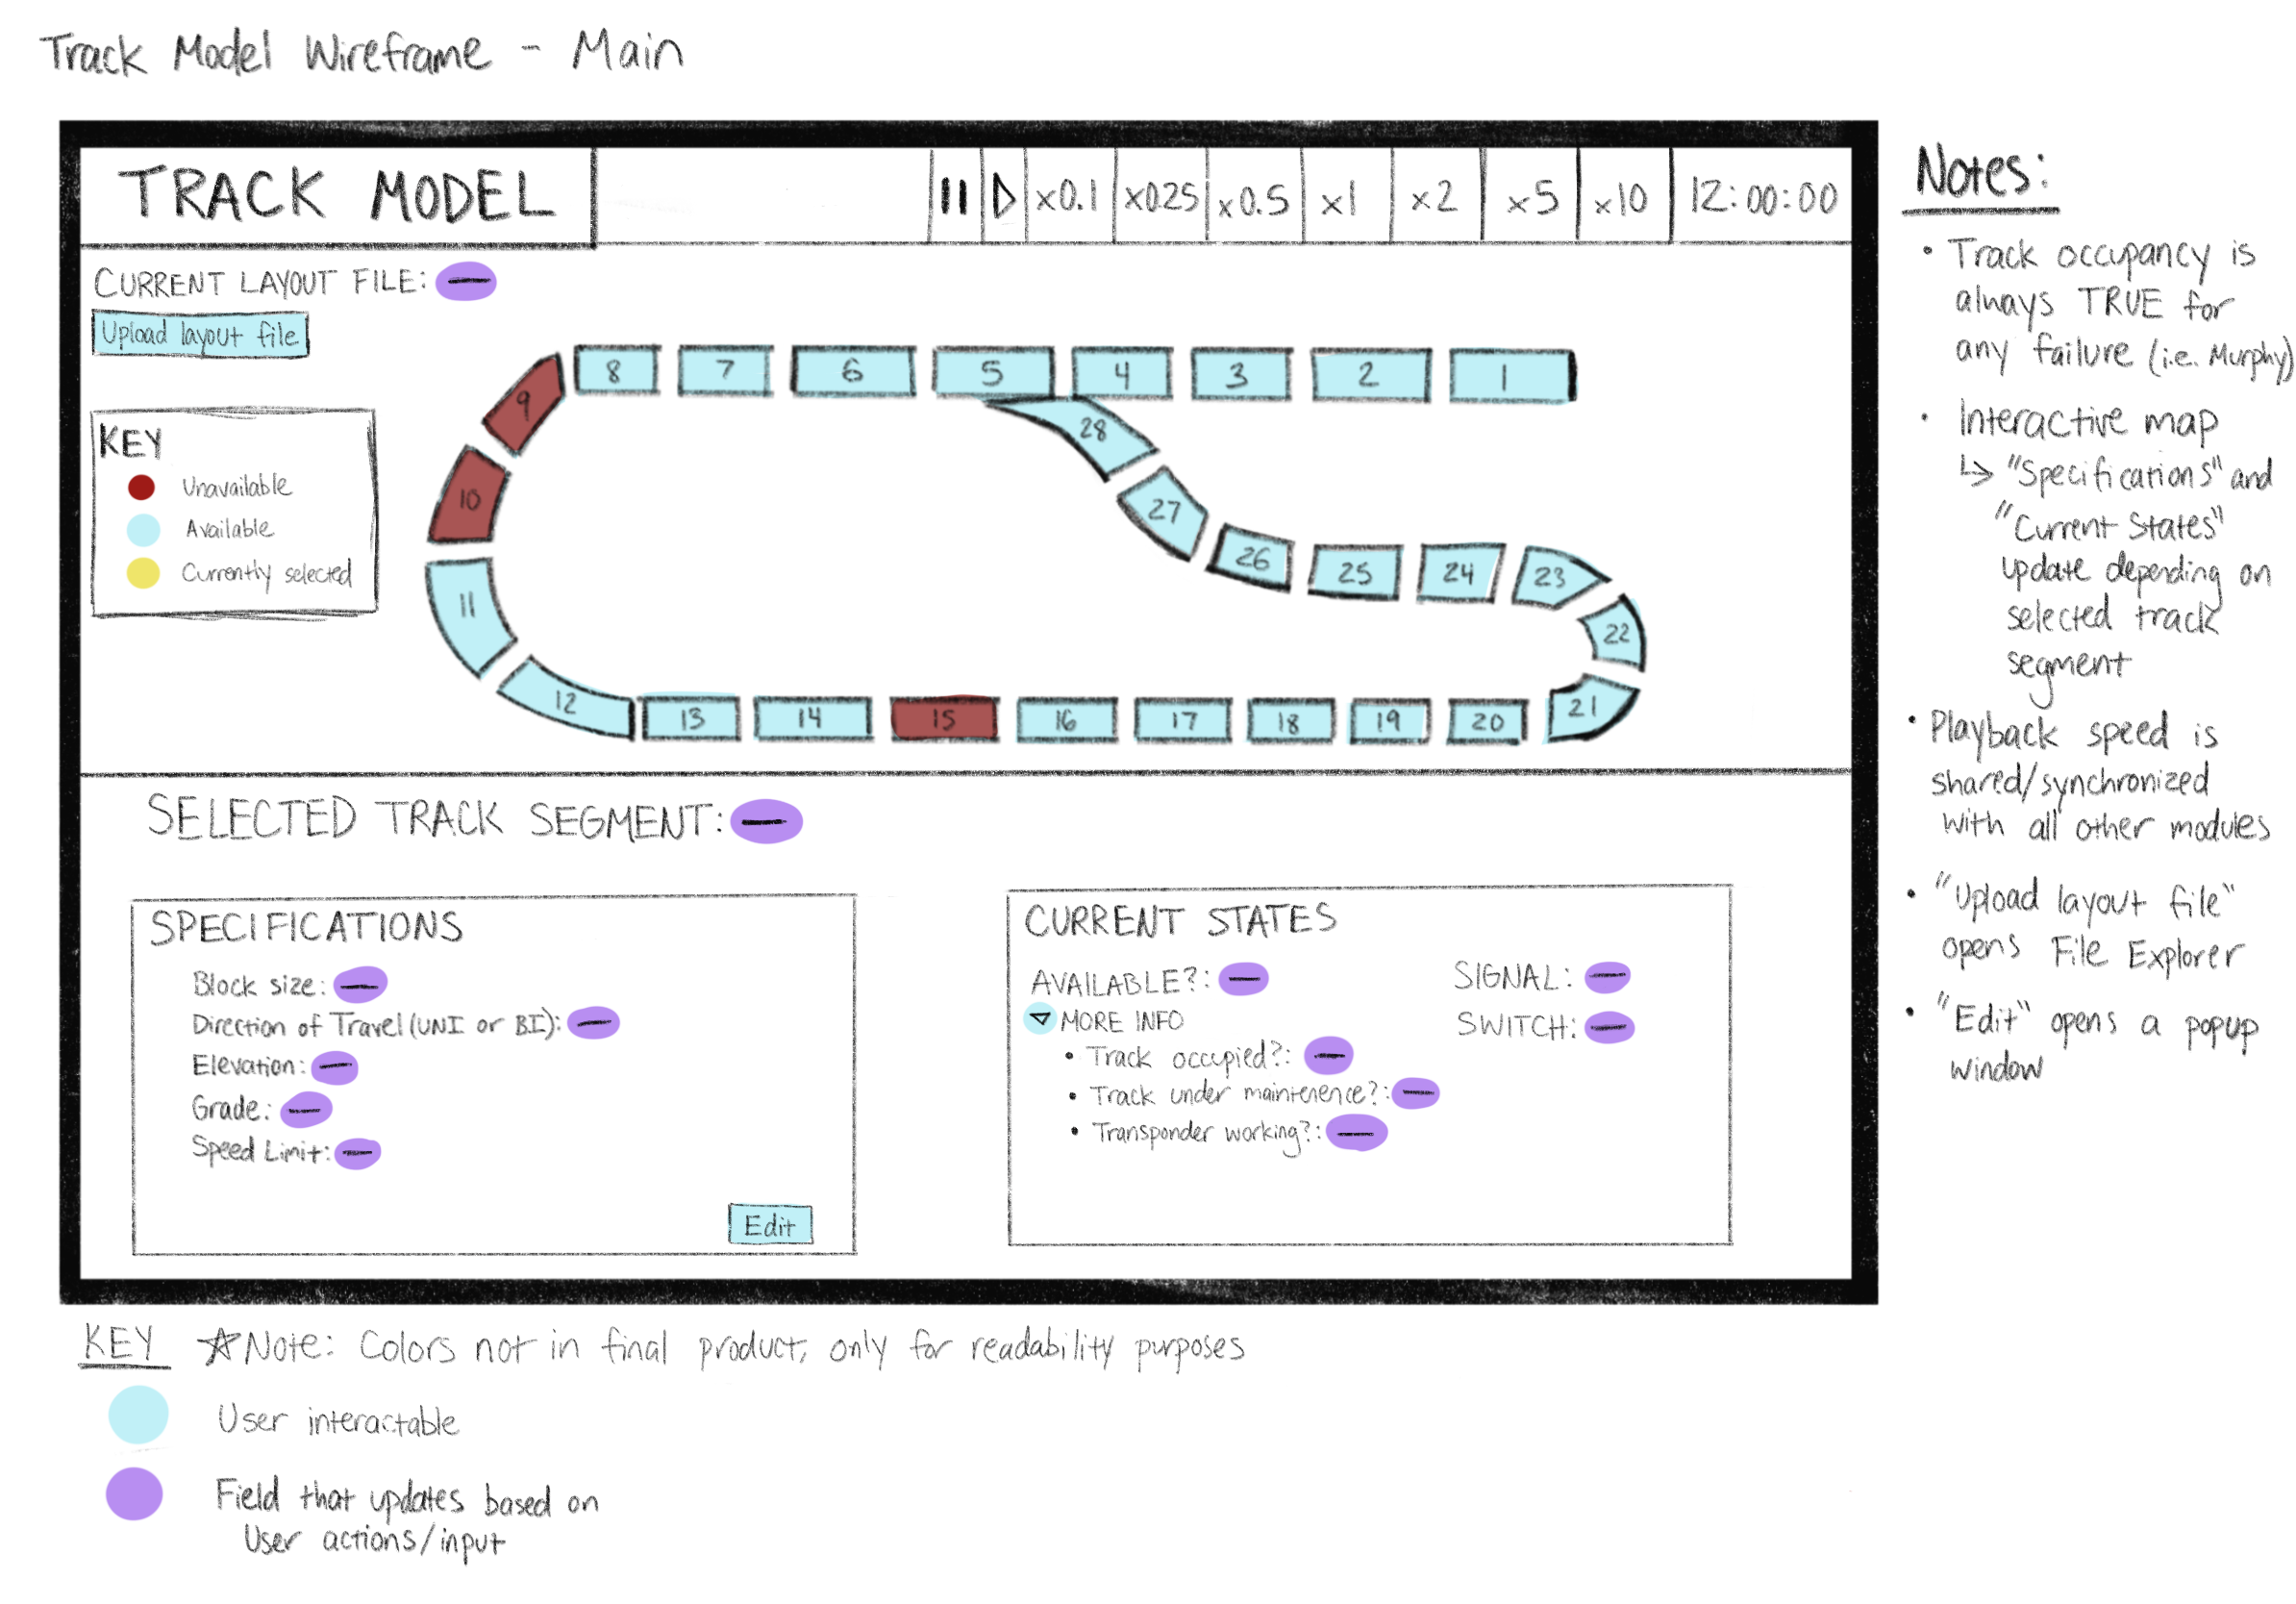 Track Model Wireframe - Main
TRACK MODEL
x0.1
x025
x0.5
x1
x2
x5
x10
12:00:00
CURRENT LAYOUT FILE: —
Upload layout file
KEY
Unavailable
Available
Currently selected
8
7
6
5
4
3
2
1
9
28
10
27
26
25
24
23
11
22
12
13
14
15
16
17
18
19
20
21
SELECTED TRACK SEGMENT: —
SPECIFICATIONS
Block size: —
Direction of Travel (UNI or BI): —
Elevation: —
Grade: —
Speed Limit: —
Edit
CURRENT STATES
AVAILABLE?: —
MORE INFO
• Track occupied?: —
• Track under maintenence?: —
• Transponder working?: —
SIGNAL: —
SWITCH: —
Notes:
• Track occupancy is
always TRUE for
any failure (i.e. Murphy)
• Interactive map
↳ "Specifications" and
"Current States"
update depending on
selected track
segment
• Playback speed is
shared/synchronized
with all other modules
• "Upload layout file"
opens File Explorer
• "Edit" opens a popup
window
KEY ☆Note: Colors not in final product, only for readability purposes
User interactable
Field that updates based on
User actions/input